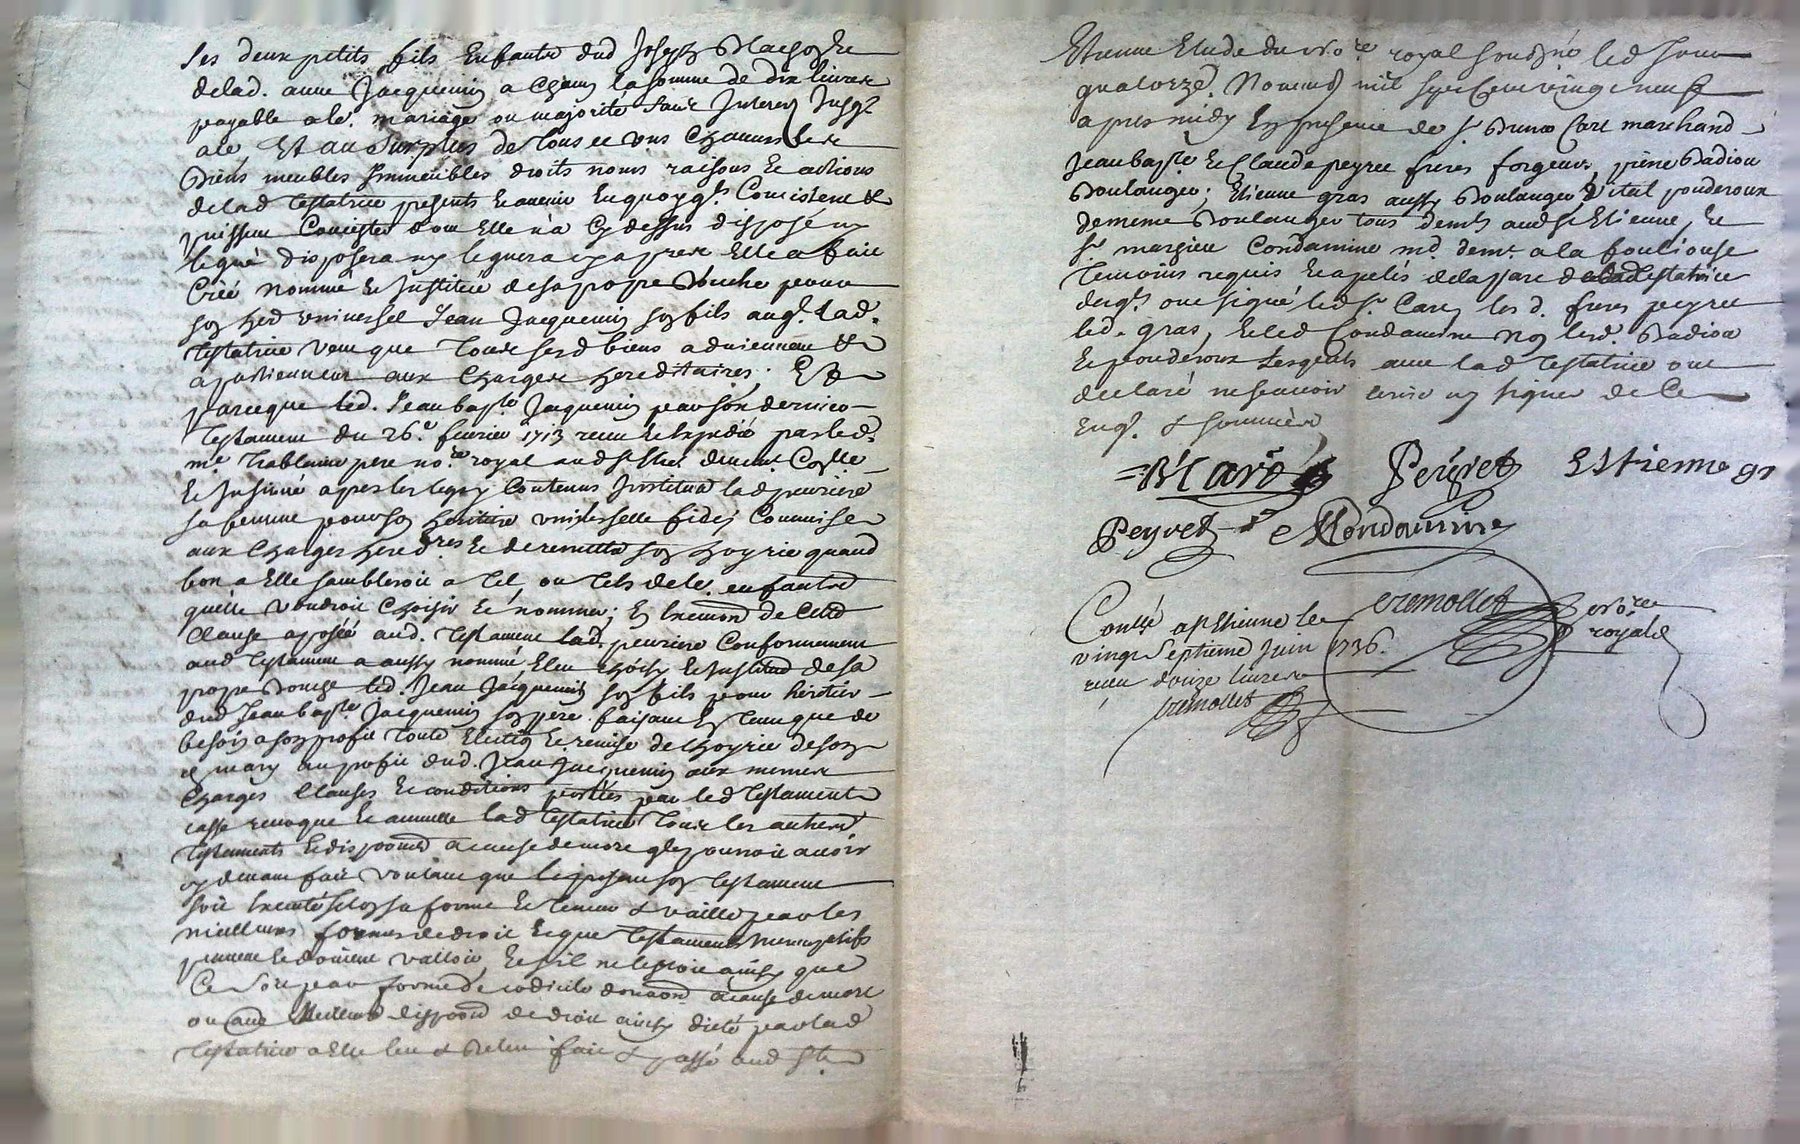 ses deux petits fils Enfants dud Joseph
delad. anne Jacquemin a Chacun la somme de dix livres
payable a le. mariage ou majorité sans Interest Jusqs
a le Et au Surplus de tous et uns Chacuns ses
Biens meubles Immeubles droits noms raisons Et actions
delad testatrice presents Et avenir En quoy qs. Concistent &
puissent Concister dont Elle n'a Cy dessus disposé ny
legué disposera ny leguera cy apres Elle a fait
Créé nommé Et Institué de sa propre Bouche pour
son herr universel Jean Jacquemin son fils auqs. Lad.
testatrice veut que tous sesd biens adviennent &
apartiennent aux Charges hereditaires. Et
parceque led. Jean bapte. Jacquemin par son dernier
testament du 26e. fevrier 1713 receu Et Expedié par led.
me. tremollet pere nore. royal aud St Etne. duement Collé
Et Insinué apres les legs y Contenus Institua lad peuriere
sa femme pour son heritiere universelle fidei Commise
aux Charges heredres Et de remettre son hoyrie quand
bon a Elle sembleroit a tel ou tels de le. enfants
qu'elle voudroit Choisir Et nommer; En Execuon de Cette
Clause apposée aud. testament lad. peuriere Conformement
aud testament a aussy nommé, Eleu choisy Et Institué de sa
propre Bouche led. Jean Jacquemin son fils pour héritier
dud Jean bapte. Jacquemin son père faisant En tant que de
besoin a son profit toute Election Et remise de l'hoyrie de son
d mary au profit dud. Jean Jacquemin aux memes
Charges Clauses Et conditions portées par led testament
casse revoque Et annulle lad testatrice tous les autres
testaments Et disposons acause de mort qle pouroit avoir
cy devant fait voulant que le present son testament
soit Executé selon sa forme Et teneur & vaille par les
meilleures formes de droit Et que testaments nuncupatifs
peuvent Et doivent valloir Et s'il ne le poit ainsy que
Ce soit par forme de codicile donaon acause de mort
ou autre Meilleure disposon de droit ainsy dicté par lad
testatrice a Elle leu & Releu fait & passé aud St
Etienne Etude du nore. royal soubzné led jour
quatorze. Novemb mil sept Cent vingt neuf
apres midy En presence de sr. Bruno Caré marchand
Jean bapte. Et Claude peyret freres forgeurs, piere Badiou
Boulanger; Etienne gras aussy Boulanger vital ponderoux
de meme Boulanger tous demts aud St Etienne, Et
sr. mathieu Condamine md. demt. a la fouliouse
temoins requis Et apelés de la part delad testatrice
desqs. ont signé led sr. Caré, les d. freres peyret
led. gras, Et led Condamine non lesd. Badiou
Et ponderoux Lesquels avec lad testatrice ont
declaré ne scavoir écrire ny signer de Ce
Enqs. & sommés
B Caré Peyret Estienne gr
Peyret Condamine
tremollet nore royal
Conlé a St Etienne le
vingt Septieme Juin 1736.
receu douze livres
tremollet